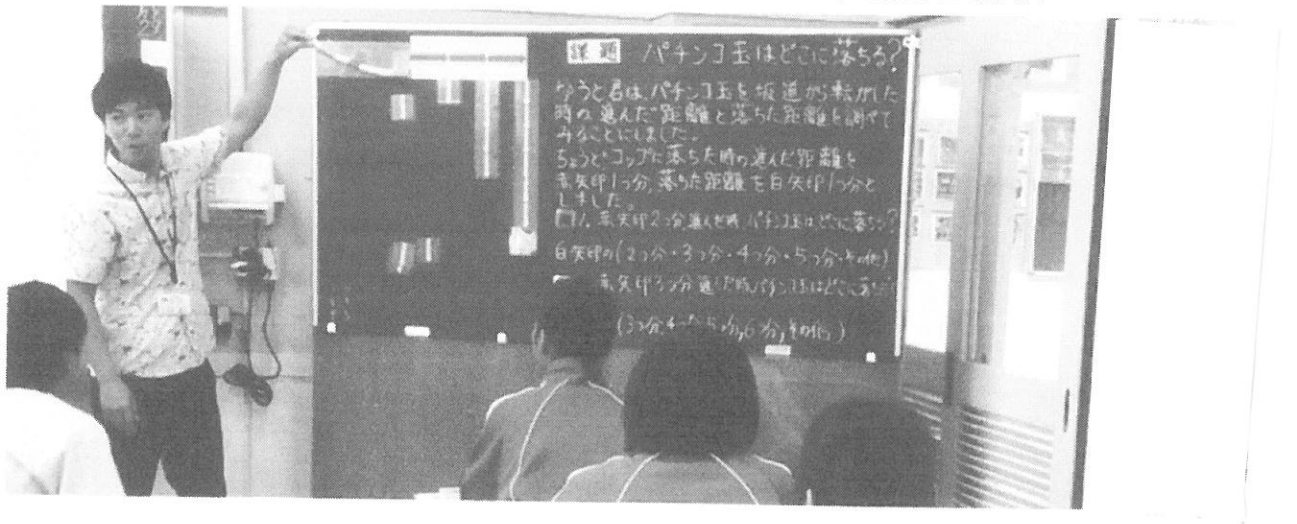 課題 パチンコ玉はどこに落ちる?
ゆうと君は、パチンコ玉を坂道から転がした
時の進んだ距離と落ちた距離を調べて
みることにしました。
ちょうどコップに落ちた時の進んだ距離を
赤矢印1つ分、落ちた距離を白矢印1つ分と
しました。
1. 赤矢印2つ分進んだ時、パチンコ玉はどこに落ちる?
白矢印の(2つ分・3つ分・4つ分・5つ分・その他)
赤矢印3つ分進んだ時、パチンコ玉はどこに落ちる?
(3つ分,4つ分,5つ分,6つ分,その他)